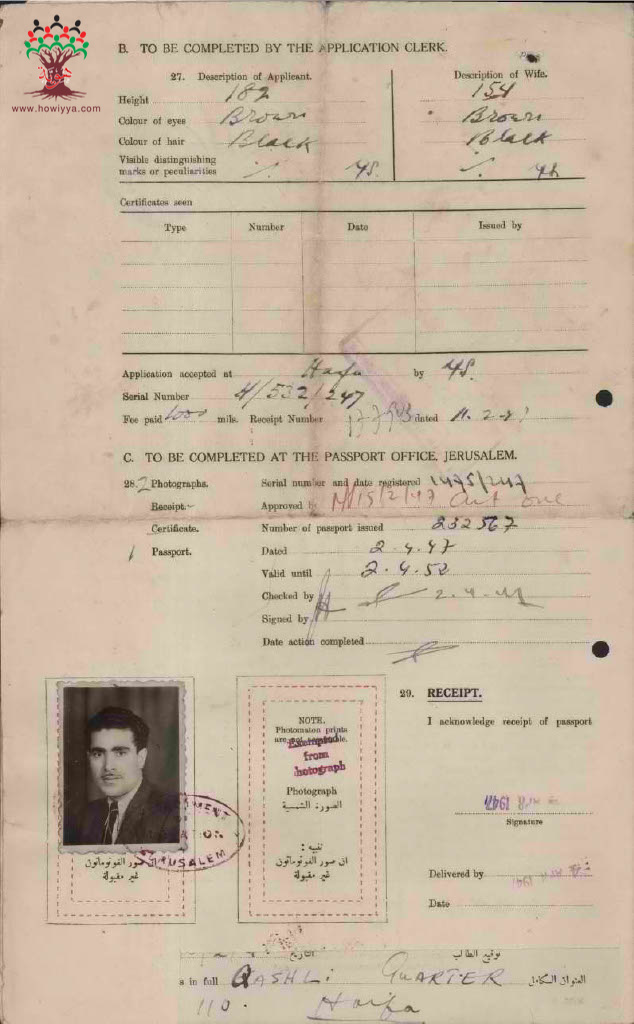 www.howiyya.com
B. TO BE COMPLETED BY THE APPLICATION CLERK.
27. Description of Applicant. Description of Wife.
Height 182 154
Colour of eyes Brown Brown
Colour of hair Black Black
Visible distinguishing
marks or peculiarities
Certificates seen
Type Number Date Issued by
Application accepted at Haifa by
Serial Number H/532/247
Fee paid 1000 mils. Receipt Number dated
C. TO BE COMPLETED AT THE PASSPORT OFFICE, JERUSALEM.
28. 2 Photographs. Serial number and date registered 1475/247
Receipt. Approved by 15/2/47
Certificate. Number of passport issued 232567
1 Passport. Dated 2.4.47
Valid until 2.4.52
Checked by 2.4.47
Signed by
Date action completed
29. RECEIPT.
I acknowledge receipt of passport
Signature
Delivered by
Date
NOTE.
Photomaton prints
are not acceptable.
Exempted
from
Photograph
Photograph
الصورة الشمسية
تنبيه :
ان صور الفوتوماتون
غير مقبولة
ان صور الفوتوماتون
غير مقبولة
JERUSALEM
التاريخ توقيع الطالب
s in full QASHLI QUARTER العنوان الكامل
110. Haifa